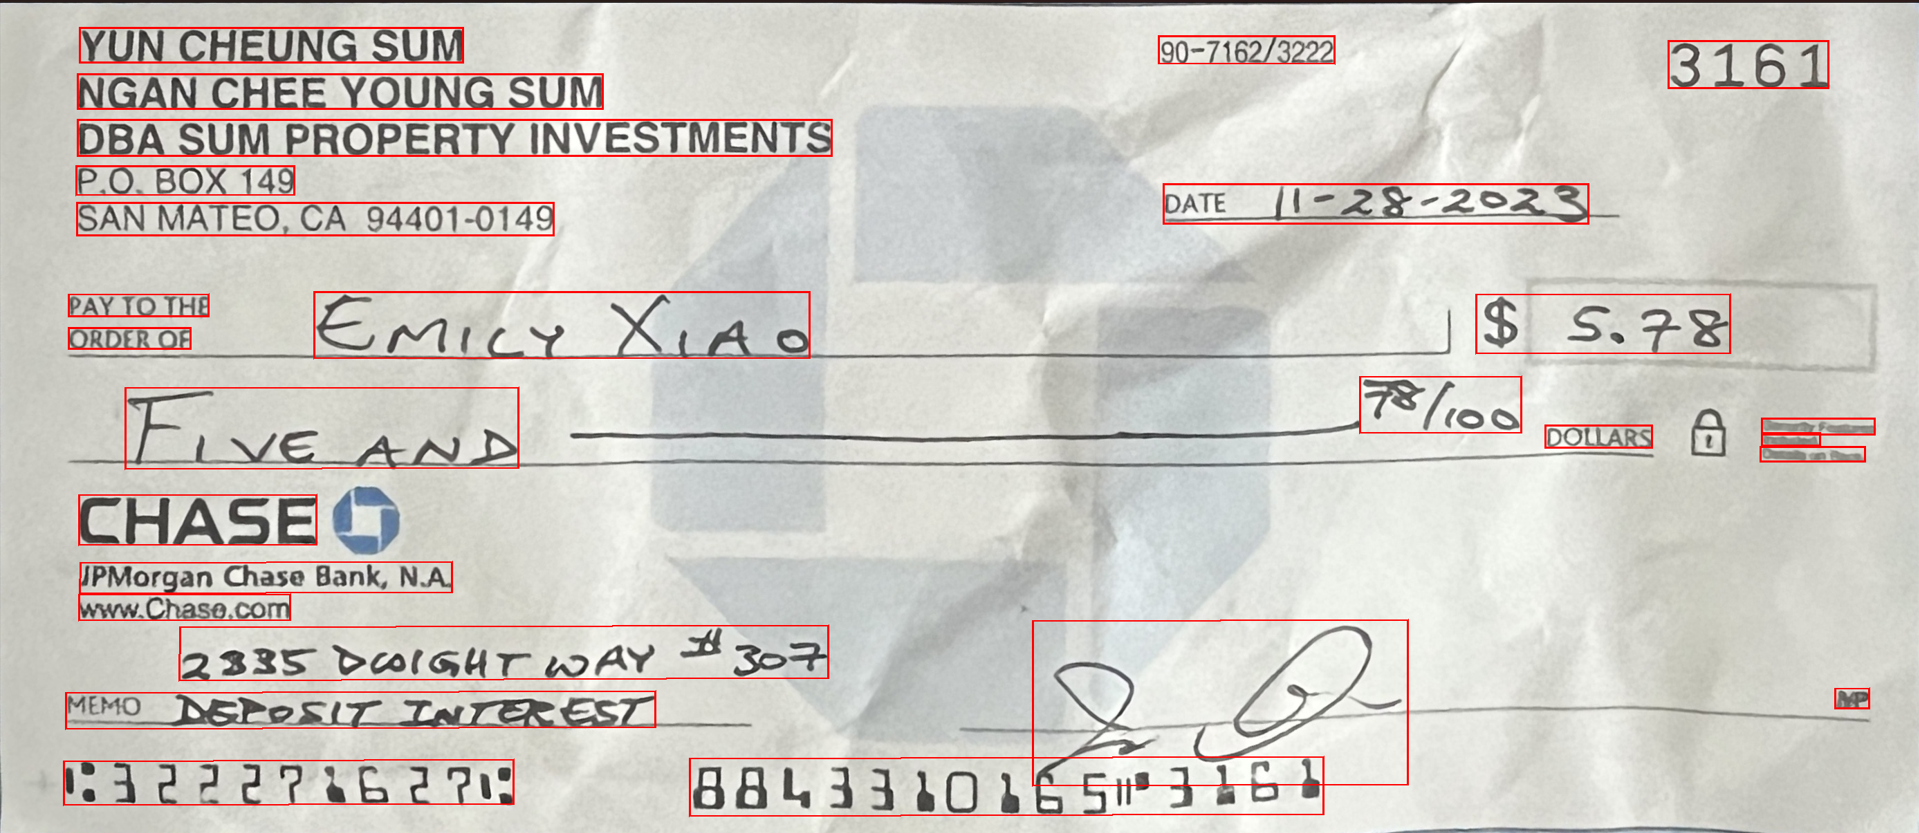 YUN CHEUNG SUM
NGAN CHEE YOUNG SUM
DBA SUM PROPERTY INVESTMENTS
P.O. BOX 149
SAN MATEO, CA 94401-0149
90-7162/3222
3161
DATE 11-28-2023
PAY TO THE
ORDER OF
EMILY XIAO
$ 5.78
FIVE AND
78/100
DOLLARS
Security Features
Included
Details on Back
CHASE
JPMorgan Chase Bank, N.A.
www.Chase.com
2335 DWIGHT WAY # 307
MEMO DEPOSIT INTEREST
MP
⑆322271627⑆
8843310165⑈3161